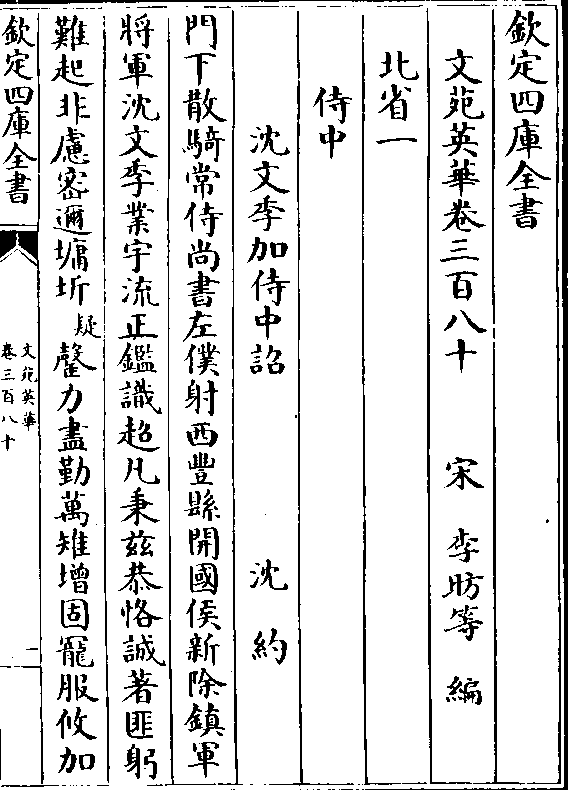 欽定四庫全書
文苑英華卷三百八十　宋　李昉等　編
北省一
侍中
沈文季加侍中詔　沈約
門下散騎常侍尚書左僕射西豐縣開國侯新除鎮軍
將軍沈文季業宇流正鑑識超凡秉茲恭恪誠著匪躬
難起非慮密邇墉圻疑罄力盡勤萬雉增固寵服攸加
欽定四庫全書
文苑英華
卷三百八十
一